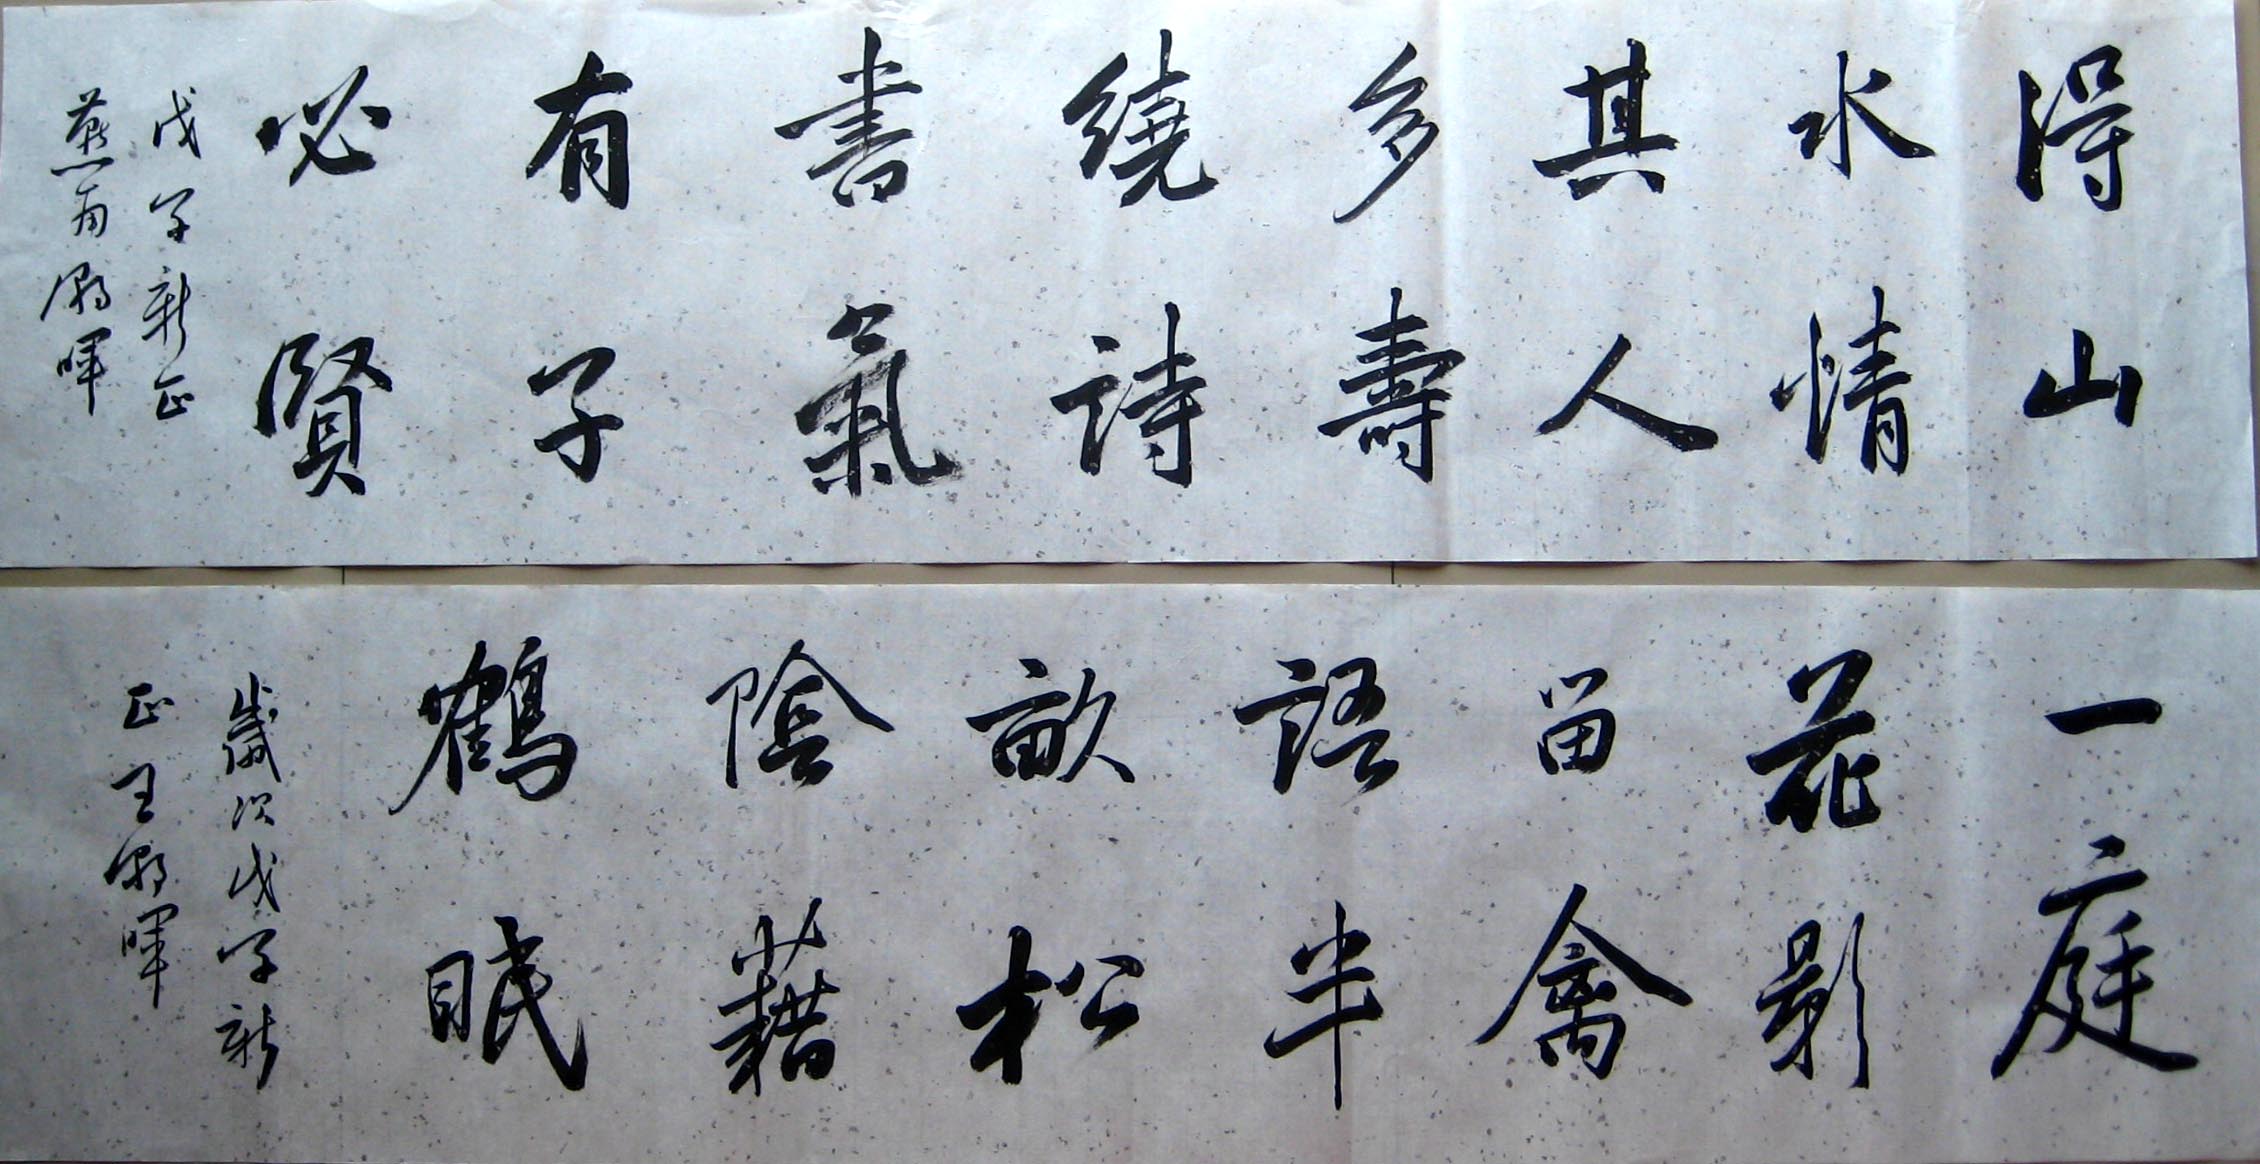 得山
水情
其人
多壽
繞詩
書氣
有子
必賢
戊子新正
燕南朝暉
一庭
花影
留禽
語半
畝松
陰藉
鶴眠
歲次戊子新
正王朝暉